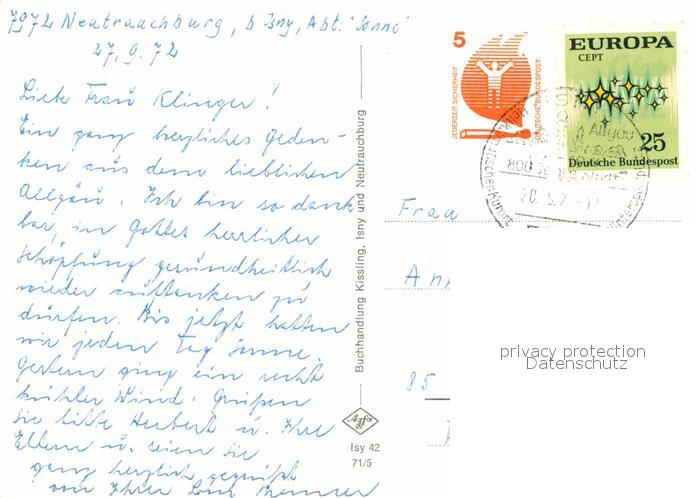 7972 Neutrauchburg, b Isny, Abt. "Sonne"
27.9.72
Liebe Frau Klinger!
Ein ganz herzliches Geden-
ken aus dem lieblichen
Allgäu. Ich bin so dank
bar, in Gottes herrlicher
Schöpfung gesundheitlich
wieder auftanken zu
dürfen. Bis jetzt hatten
wir jeden Tag Sonne.
Gestern ging ein recht
kühler Wind. Grüßen
Sie bitte Herbert u. Ihre
Eltern u. seien Sie
ganz herzlich gegrüßt
von Ihrer
Buchhandlung Kissling, Isny und Neutrauchburg
Agfa
Isy 42
71/5
5
JEDERZEIT SICHERHEIT
DEUTSCHE BUNDESPOST
EUROPA
CEPT
25
Deutsche Bundespost
Allgäu
Frau
An
85
privacy protection
Datenschutz